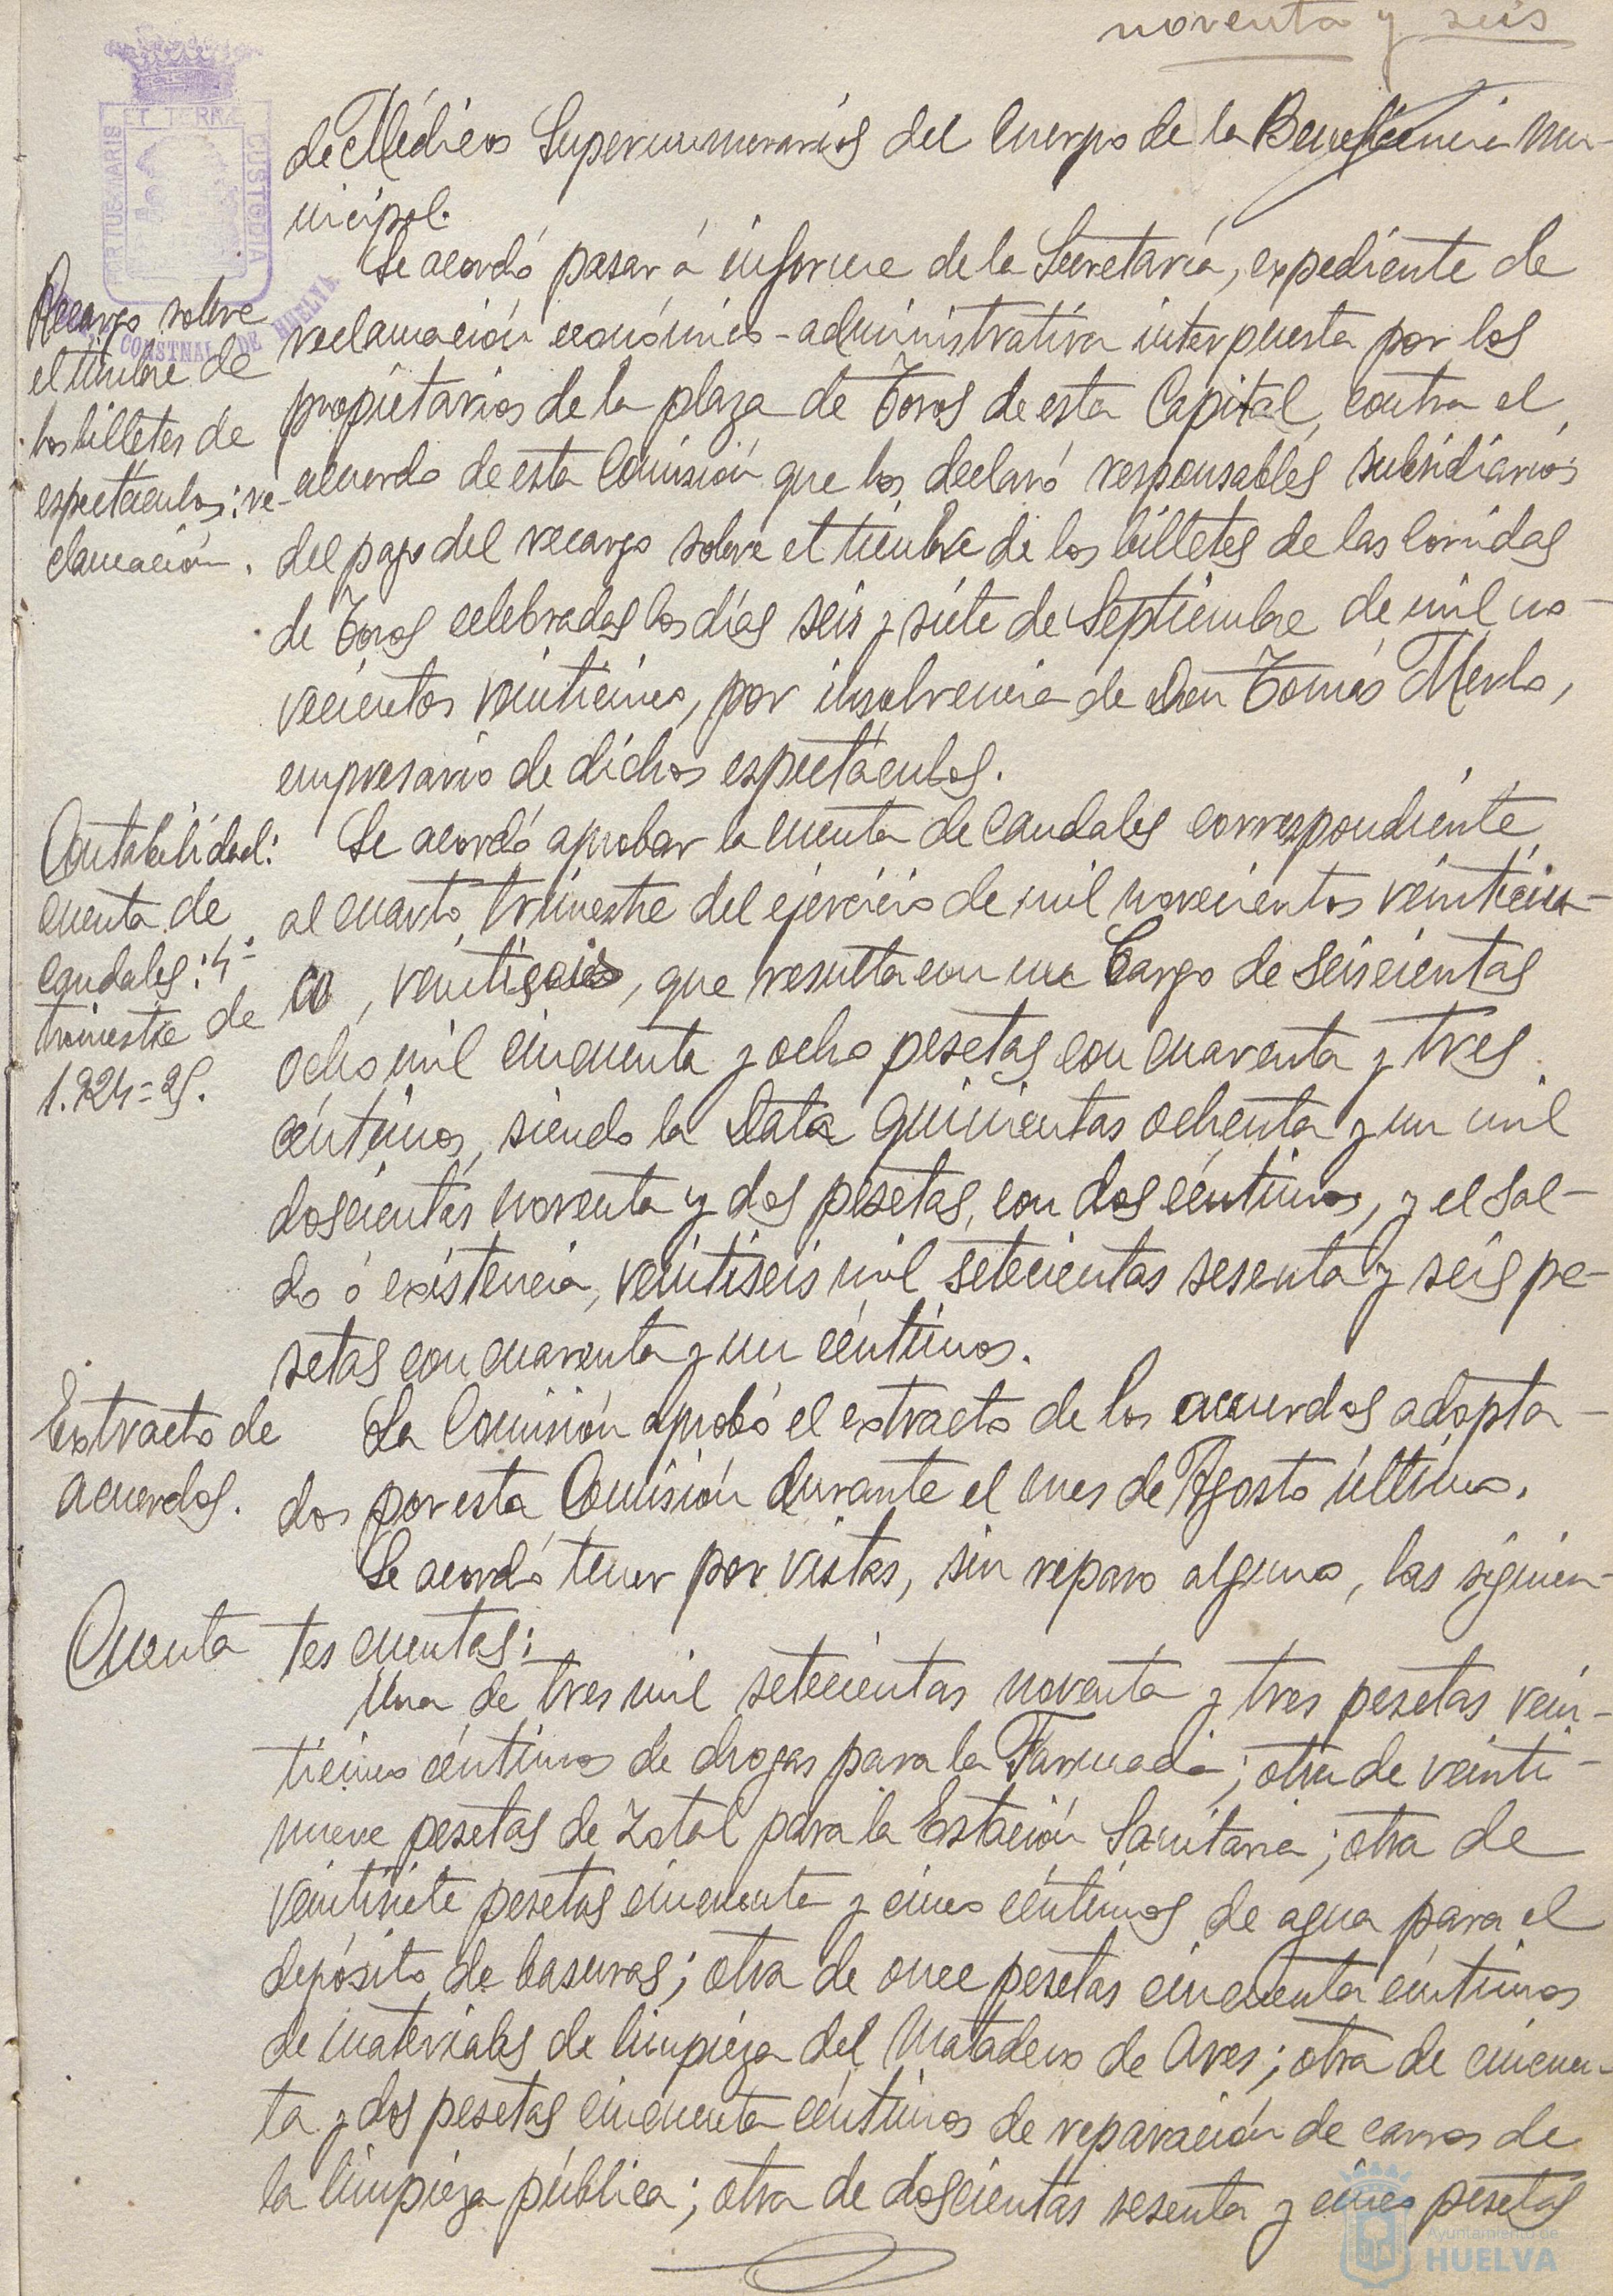 noventa y seis
de Médicos Supernumerarios del Cuerpo de la Beneficencia Mu-
nicipal.
Recargo sobre
el timbre de
los billetes de
espectáculos: re-
clamación.
Se acordó pasar á informe de la Secretaría, expediente de
reclamación económico-administrativa interpuesta por los
propietarios de la plaza de Toros de esta Capital, contra el
acuerdo de esta Comisión que los declaró responsables subsidiarios
del pago del recargo sobre el timbre de los billetes de las Corridas
de Toros celebradas los días seis y siete de Septiembre de mil no-
vecientos veinticinco, por insolvencia de Don Tomás Merlo,
empresario de dichos espectáculos.
Contabilidad:
cuenta de
caudales: 4º
trimestre de
1.924=25.
Se acordó aprobar la cuenta de Caudales correspondiente
al cuarto trimestre del ejercicio de mil novecientos veinticin-
co, veintiseis, que resulta con un Cargo de seiscientas
ocho mil cincuenta y ocho pesetas con cuarenta y tres
céntimos, siendo la Data quinientas ochenta y un mil
doscientas noventa y dos pesetas, con dos céntimos, y el sal-
do ó existencia, veintiseis mil setecientas sesenta y seis pe-
setas con cuarenta y un céntimos.
Extracto de
acuerdos.
La Comisión aprobó el extracto de los acuerdos adopta-
dos por esta Comisión durante el mes de Agosto último.
Se acordó tener por vistas, sin reparo alguno, las siguien-
Cuenta
tes cuentas:
Una de tres mil setecientas noventa y tres pesetas vein-
ticinco céntimos de drogas para la Farmacia; otra de veinti-
nueve pesetas de Zotal para la Estación Sanitaria; otra de
veintisiete pesetas cincuenta y cinco céntimos de agua para el
depósito de basuras; otra de once pesetas cincuenta céntimos
de materiales de limpieza del Matadero de Aves; otra de cincuen-
ta y dos pesetas cincuenta céntimos de reparación de carros de
la limpieza pública; otra de doscientas sesenta y cinco pesetas
PORTUS MARIS
ET TERRÆ
CUSTODIA
CONSTNAL DE HUELVA
Ayuntamiento de
HUELVA